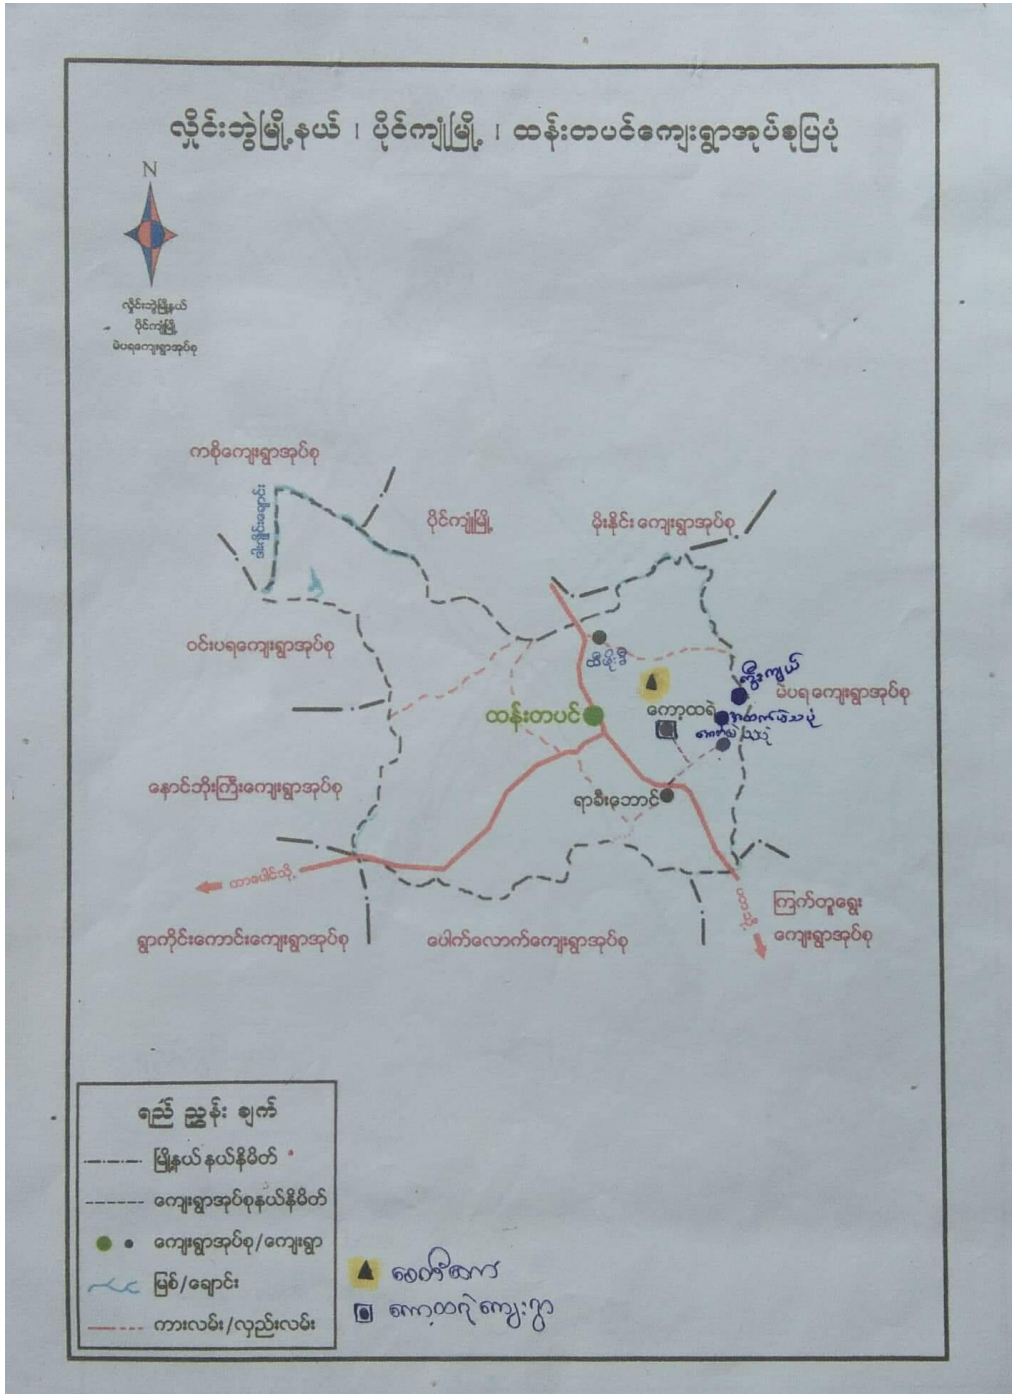 လှိုင်းဘွဲမြို့နယ် ၊ ပိုင်ကျုံမြို့ ၊ ထန်းတပင်ကျေးရွာအုပ်စုပြပုံ
N
လှိုင်းဘွဲမြို့နယ်
ပိုင်ကျုံမြို့
မဲပရကျေးရွာအုပ်စု
ကစိုကျေးရွာအုပ်စု
ပိုင်ကျုံမြို့
မိုးနိုင်းကျေးရွာအုပ်စု
ဝင်းပရကျေးရွာအုပ်စု
မဲပရကျေးရွာအုပ်စု
ထန်းတပင်
ကော့ထရဲ
နောင်ဘိုးကြီးကျေးရွာအုပ်စု
ရာခီးဘောင်
တာပေါင်သို့
ရွာကိုင်းကောင်းကျေးရွာအုပ်စု
ပေါက်လောက်ကျေးရွာအုပ်စု
ကြက်တူရွေး
ကျေးရွာအုပ်စု
ရည် ညွှန်း ချက်
မြို့နယ်နယ်နိမိတ်
ကျေးရွာအုပ်စုနယ်နိမိတ်
ကျေးရွာအုပ်စု/ကျေးရွာ
မြစ်/ချောင်း
ကားလမ်း/လှည်းလမ်း
ကော့ထရဲကျေးရွာ